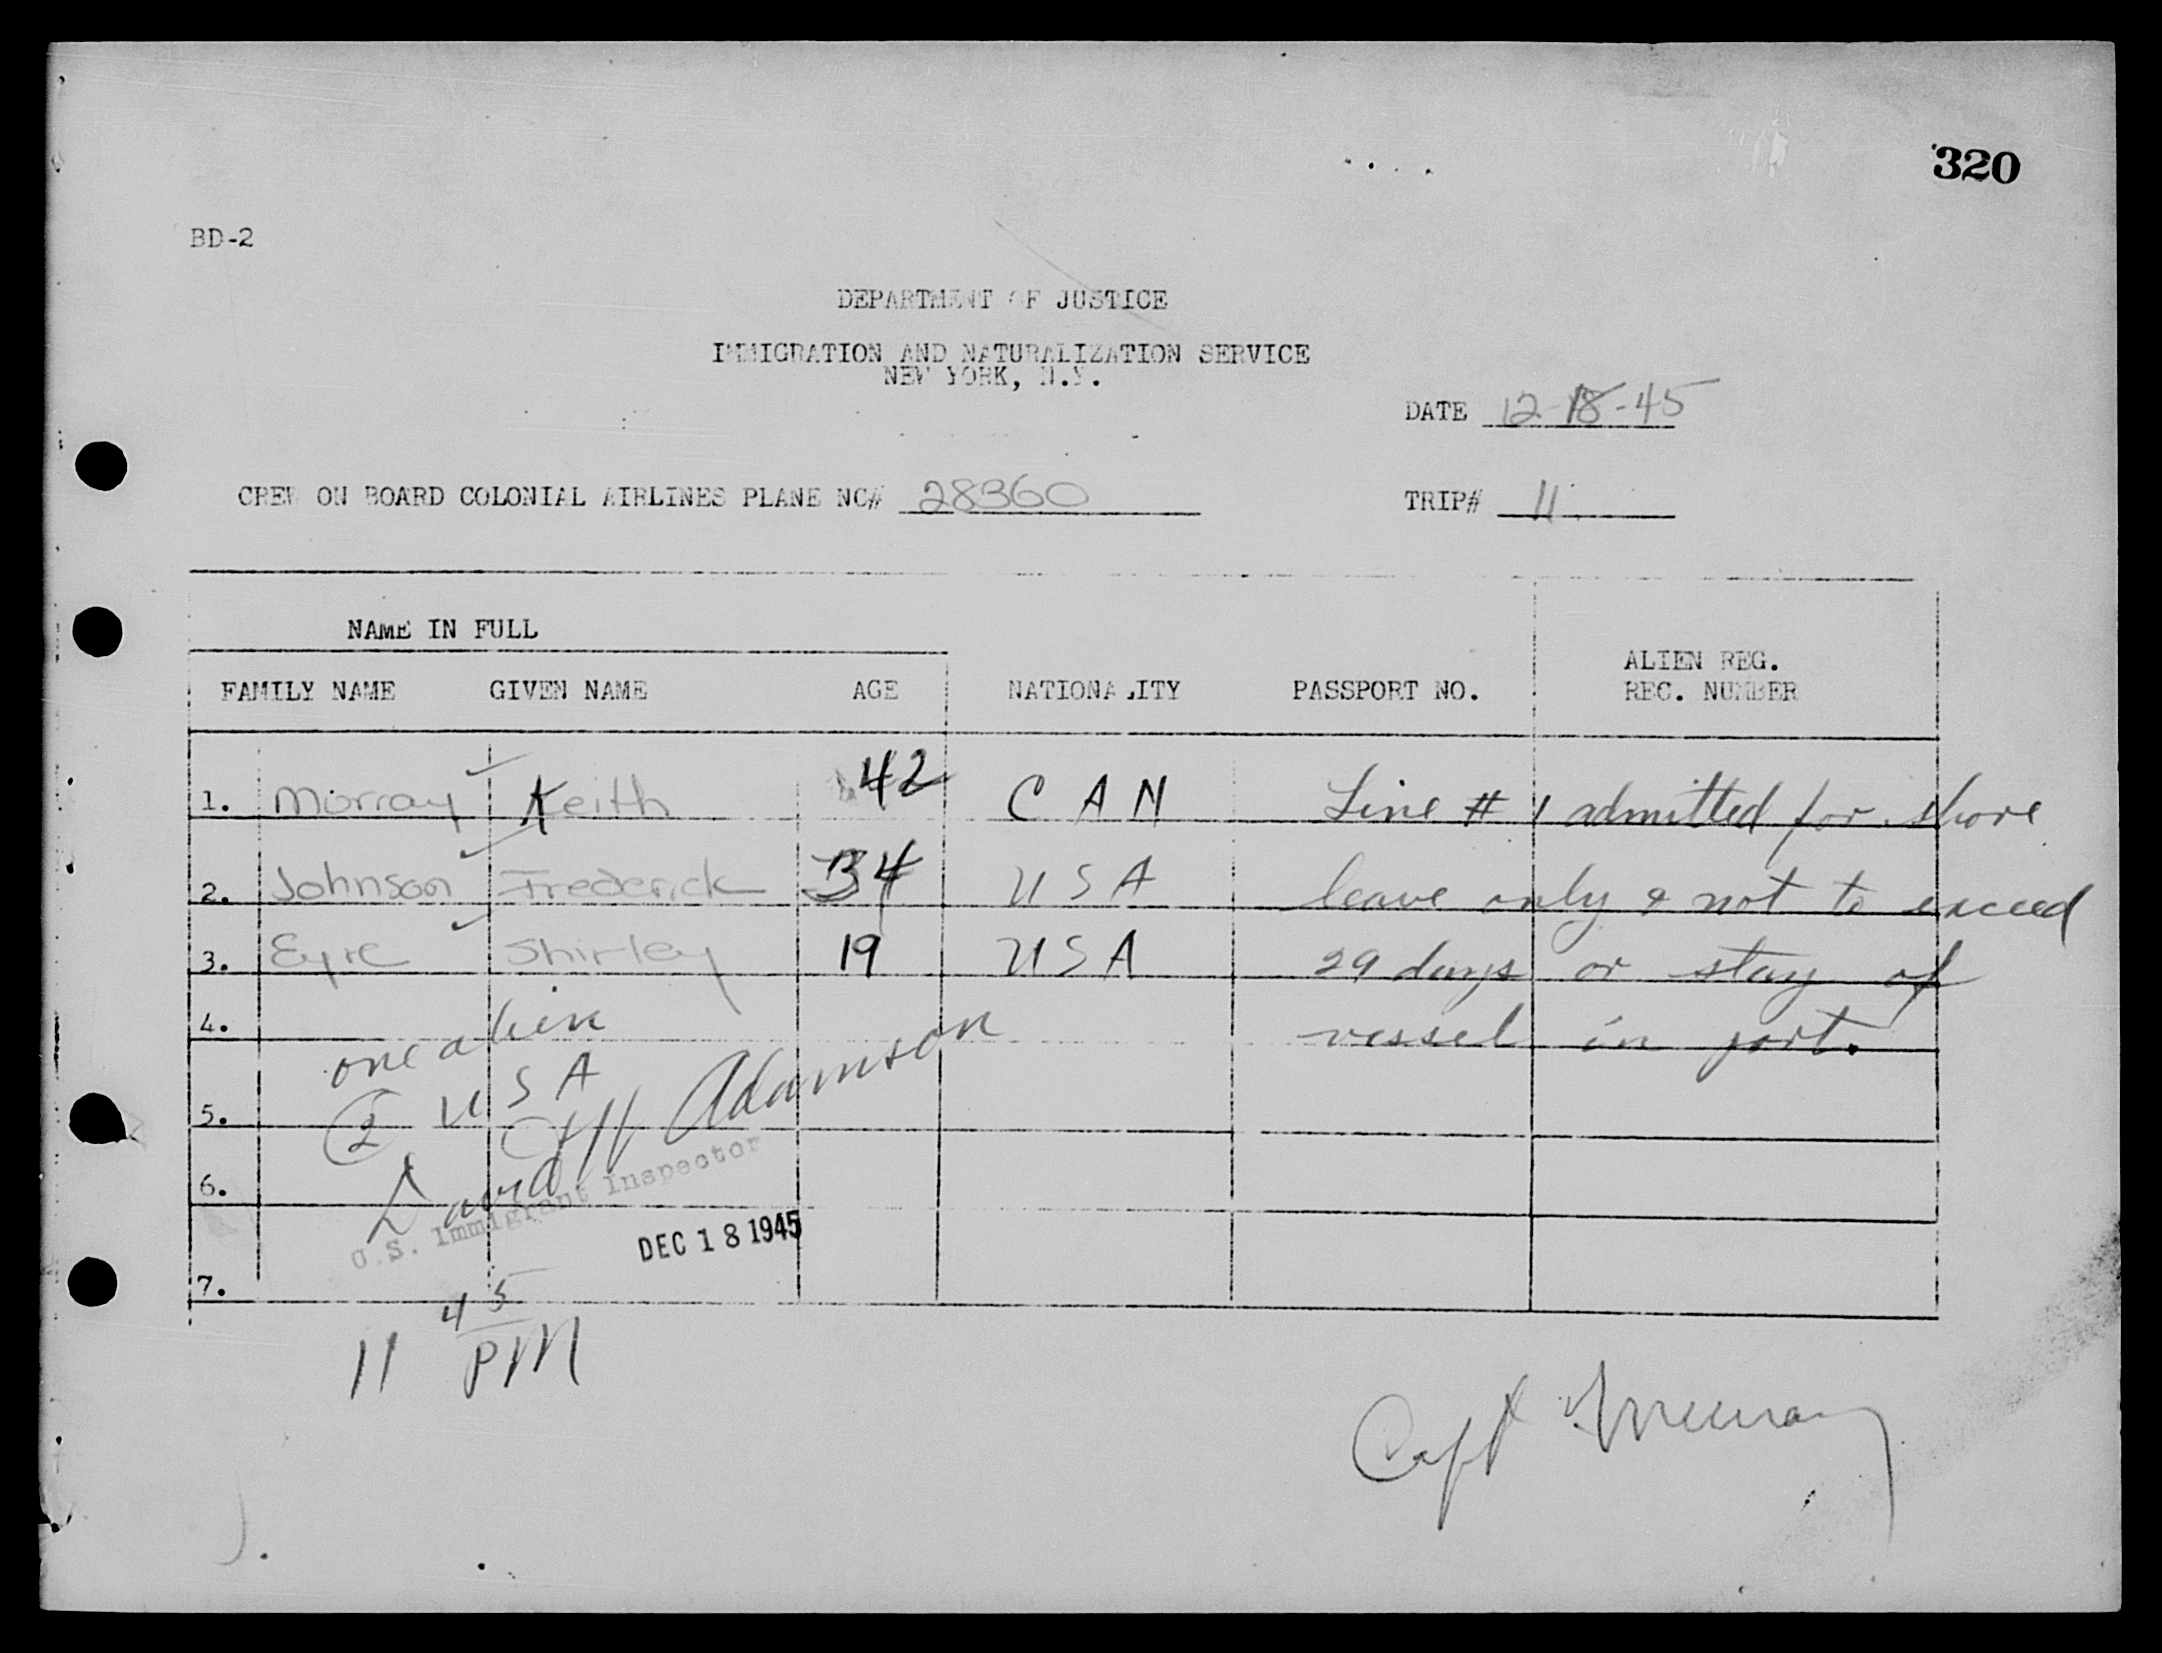 320
BD-2
DEPARTMENT OF JUSTICE
IMMIGRATION AND NATURALIZATION SERVICE
NEW YORK, N.Y.
DATE 12-18-45
CREW ON BOARD COLONIAL AIRLINES PLANE NC# 28360 TRIP# 11
NAME IN FULL
FAMILY NAME GIVEN NAME AGE NATIONALITY PASSPORT NO. ALIEN REG. REC. NUMBER
1. Murray Keith 42 CAN Line # 1 admitted for shore
2. Johnson Frederick 34 USA leave only & not to exceed
3. Eyre Shirley 19 USA 29 days or stay of
4. vessel in port.
one alien
5. 2 USA
David Adamson
6. U.S. Immigrant Inspector
DEC 18 1945
7.
11 45 PM
Capt